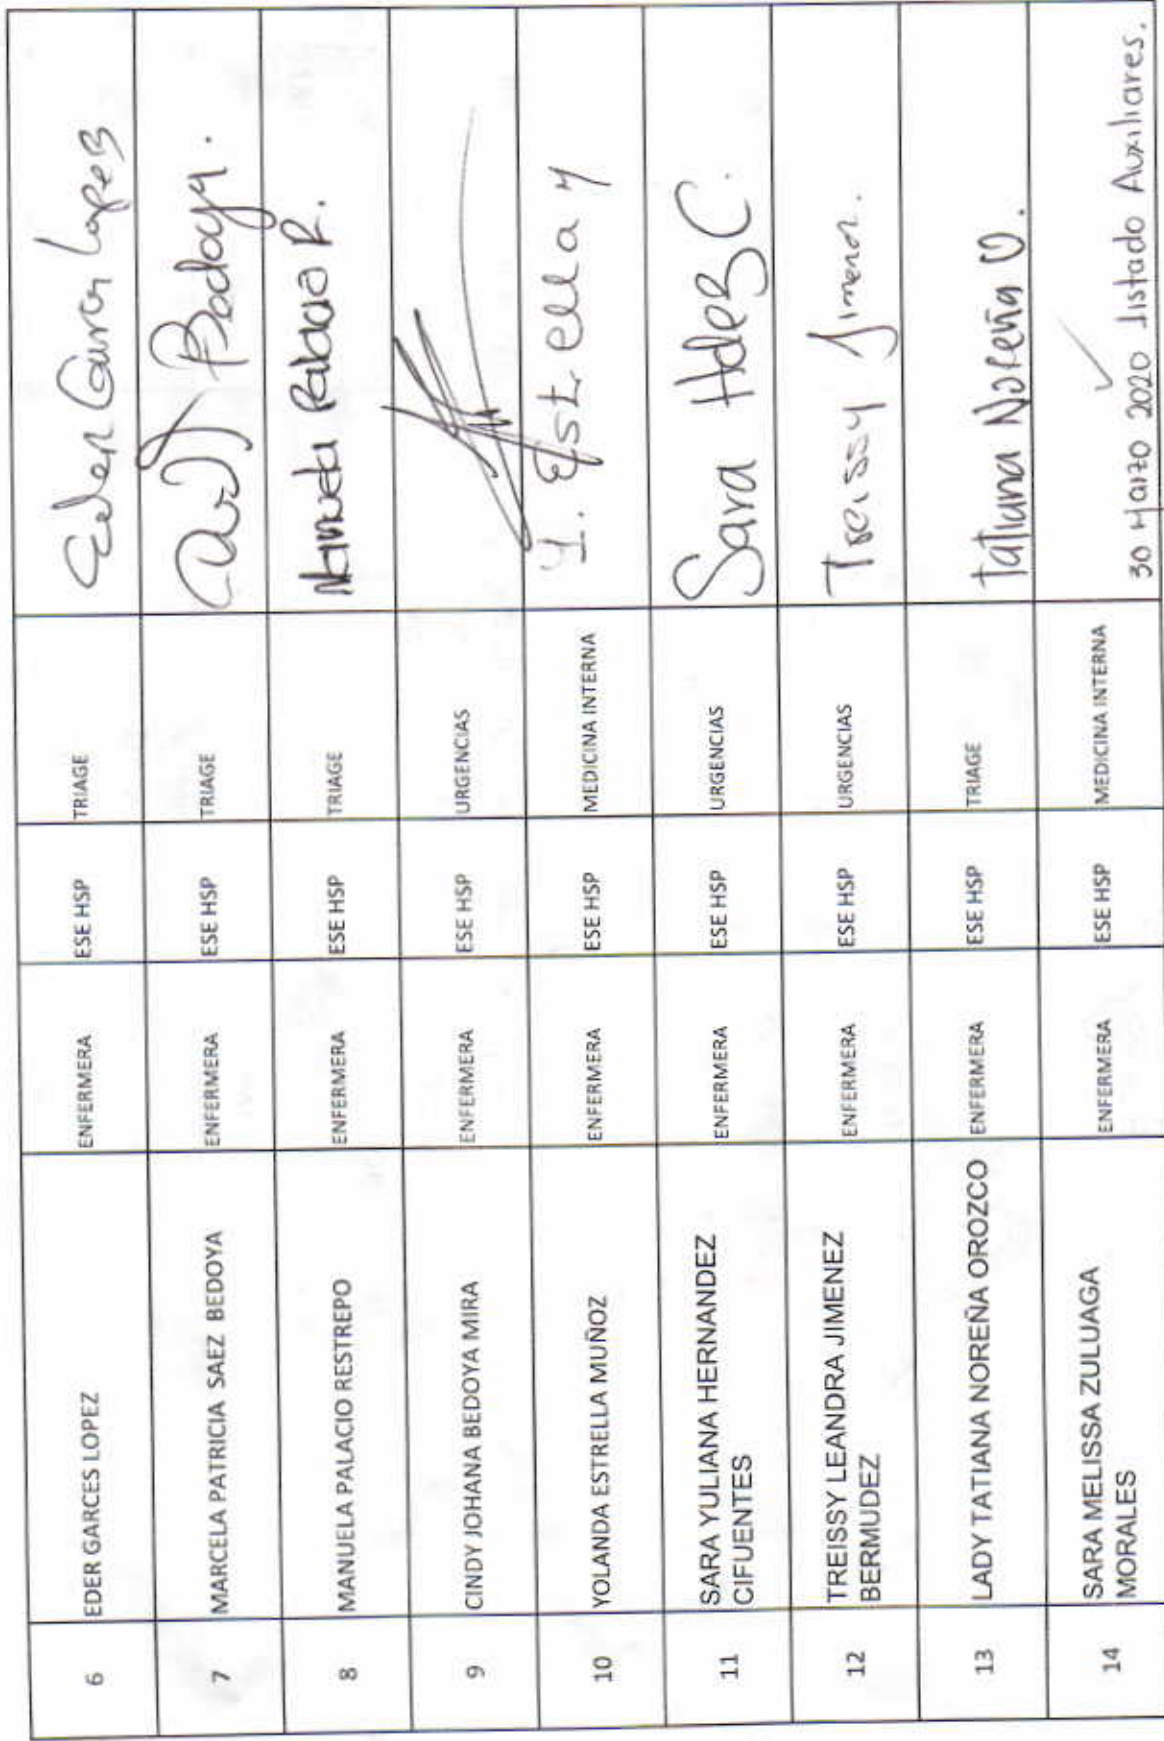 6 EDER GARCES LOPEZ ENFERMERA ESE HSP TRIAGE Eder Garces Lopez
7 MARCELA PATRICIA SAEZ BEDOYA ENFERMERA ESE HSP TRIAGE Bedoya.
8 MANUELA PALACIO RESTREPO ENFERMERA ESE HSP TRIAGE Manuela Palacio R.
9 CINDY JOHANA BEDOYA MIRA ENFERMERA ESE HSP URGENCIAS
10 YOLANDA ESTRELLA MUÑOZ ENFERMERA ESE HSP MEDICINA INTERNA Y. Estrella M
11 SARA YULIANA HERNANDEZ
CIFUENTES ENFERMERA ESE HSP URGENCIAS Sara HdeB C.
12 TREISSY LEANDRA JIMENEZ
BERMUDEZ ENFERMERA ESE HSP URGENCIAS Treissy Jimenez.
13 LADY TATIANA NOREÑA OROZCO ENFERMERA ESE HSP TRIAGE Tatiana Noreña O.
14 SARA MELISSA ZULUAGA
MORALES ENFERMERA ESE HSP MEDICINA INTERNA ✓
30 Marzo 2020 listado Auxiliares.